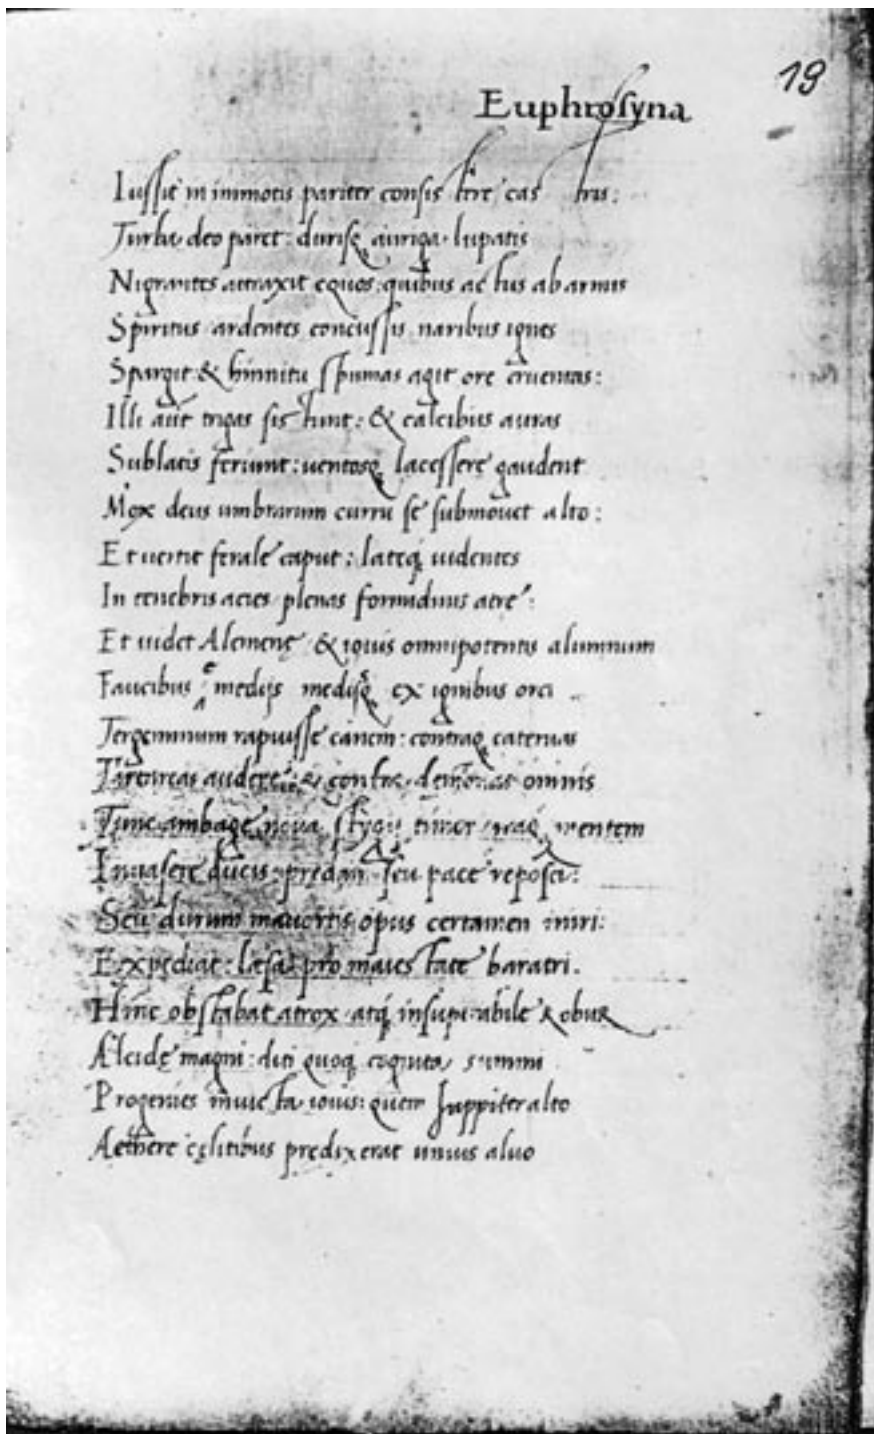 19
Euphrosyna
Iussit in immotis pariter consistere castris:
Turba deo paret: durisq auriga lupatis
Nigrantes attraxit equos: quibus actus ab armis
Spiritus ardentes concussis naribus ignes
Spargit & hinnitu spumas agit ore cruentas:
Illi aut rigas sistunt: & calcibus auras
Sublatis feriunt: uentosq lacessere gaudent
Mox deus umbrarum curru se submouet alto:
Et uertit ferale caput: lateq uidentes
In tenebris acies plenas formidinis atre:
Et uidet Alcmenę & iouis omnipotentis alumnum
Faucibus e medijs medisq ex ignibus orci
Tergeminum rapuisse canem: contraq cateruas
Tartareas audere: &
Tunc ambage noua stygij timor mentem
Inuasere ducis: prędam seu pace reposci:
Seu durum mauortis opus certamen iniri:
Expediat: læsa pro maiestate baratri.
Hinc obstabat atrox atq insupabile Robur
Alcidę magni: diti quoq cognita summi
Progenies inuicta iouis: quem Iuppiter alto
Aethere cęlitibus prędixerat unius aluo